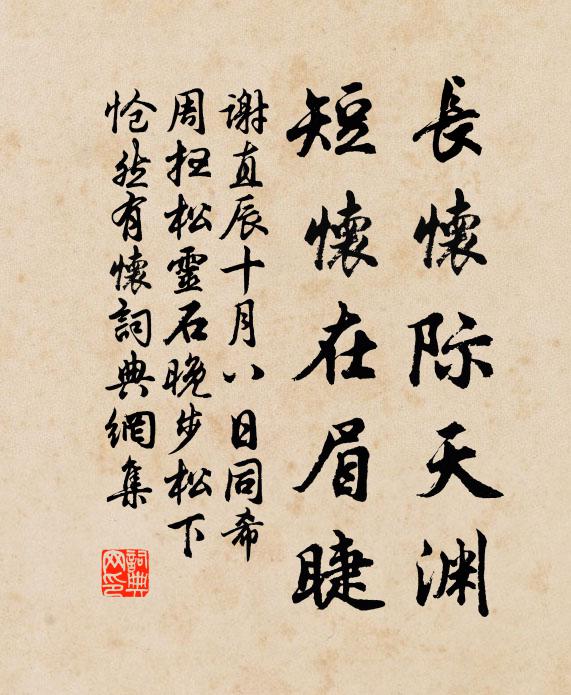 長懷际天渊
短懷在眉睫
谢直辰十月八日同希
周扭松靈石晚步松下
怆然有懷詞典網集
詞典網印